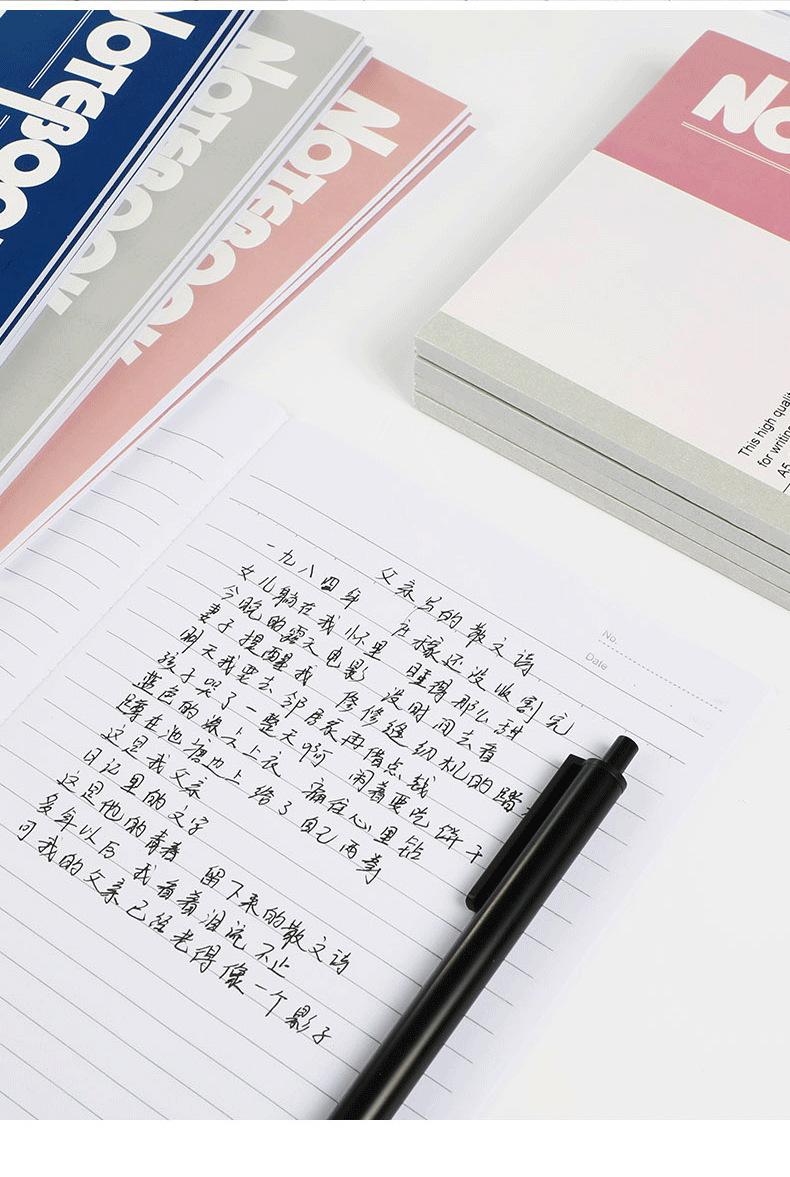 NOTEBOOK
NOTEBOOK
NOTEBOOK
NO
This high quali
for writing
A5
No.
Date
父亲写的散文诗
一九八四年 庄稼还没收割完
女儿躺在我怀里 睡得那么甜
今晚的露天电影 没时间去看
妻子提醒我 修修缝纫机的踏
明天我要去 邻居家再借点钱
孩子哭了一整天啊 闹着要吃饼干
蓝色的涤卡上衣 痛往心里钻
蹲在池塘边上 给了自己两拳
这是我父亲
日记里的文字
这是他的青春 留下来的散文诗
多年以后 我看着泪流不止
可我的父亲已经老得像一个影子